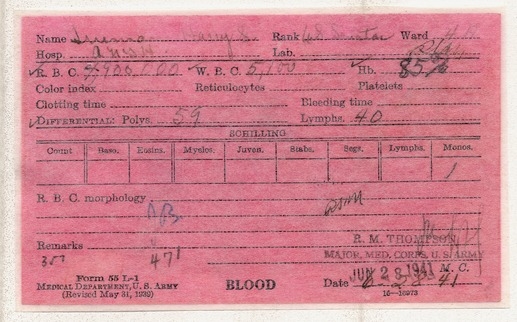 Name Truman Harry S. Rank Ward
Hosp. Lab.
✓R. B. C. 4,900,000 ✓W. B. C. 5,100 ✓Hb. 85%
Color index Reticulocytes Platelets
Clotting time Bleeding time
✓DIFFERENTIAL: Polys. 59 Lymphs. 40
SCHILLING
Count Baso. Eosins. Myelos. Juven. Stabs. Segs. Lymphs. Monos.
1
R. B. C. morphology
R. M. THOMPSON
Remarks MAJOR, MED. CORPS, U. S. ARMY
357 471 JUN 28 1941 M. C.
Form 55 L-1
MEDICAL DEPARTMENT, U. S. ARMY BLOOD Date 6-28-41
(Revised May 31, 1939) 16—10273